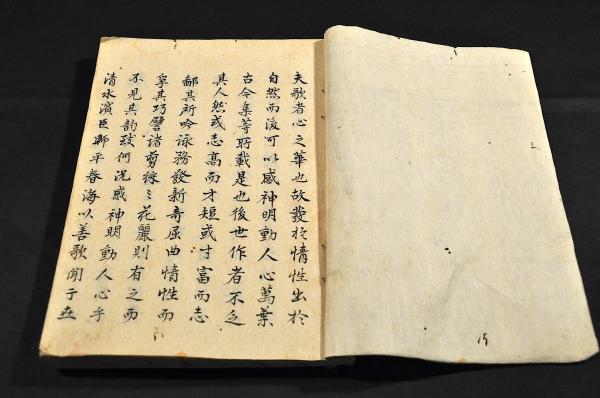 夫歌者心之華也故發於情性出於
自然而後可以感神明動人心萬葉
古今集等所載是也後世作者不乏
其人然或志高而才短或才富而志
鄙其所吟詠務發新奇屈曲情性而
爭其巧譬諸剪綵之花麗則有之而
不見其韵致何況感神明動人心乎
清水濱臣師平春海以善歌聞于世